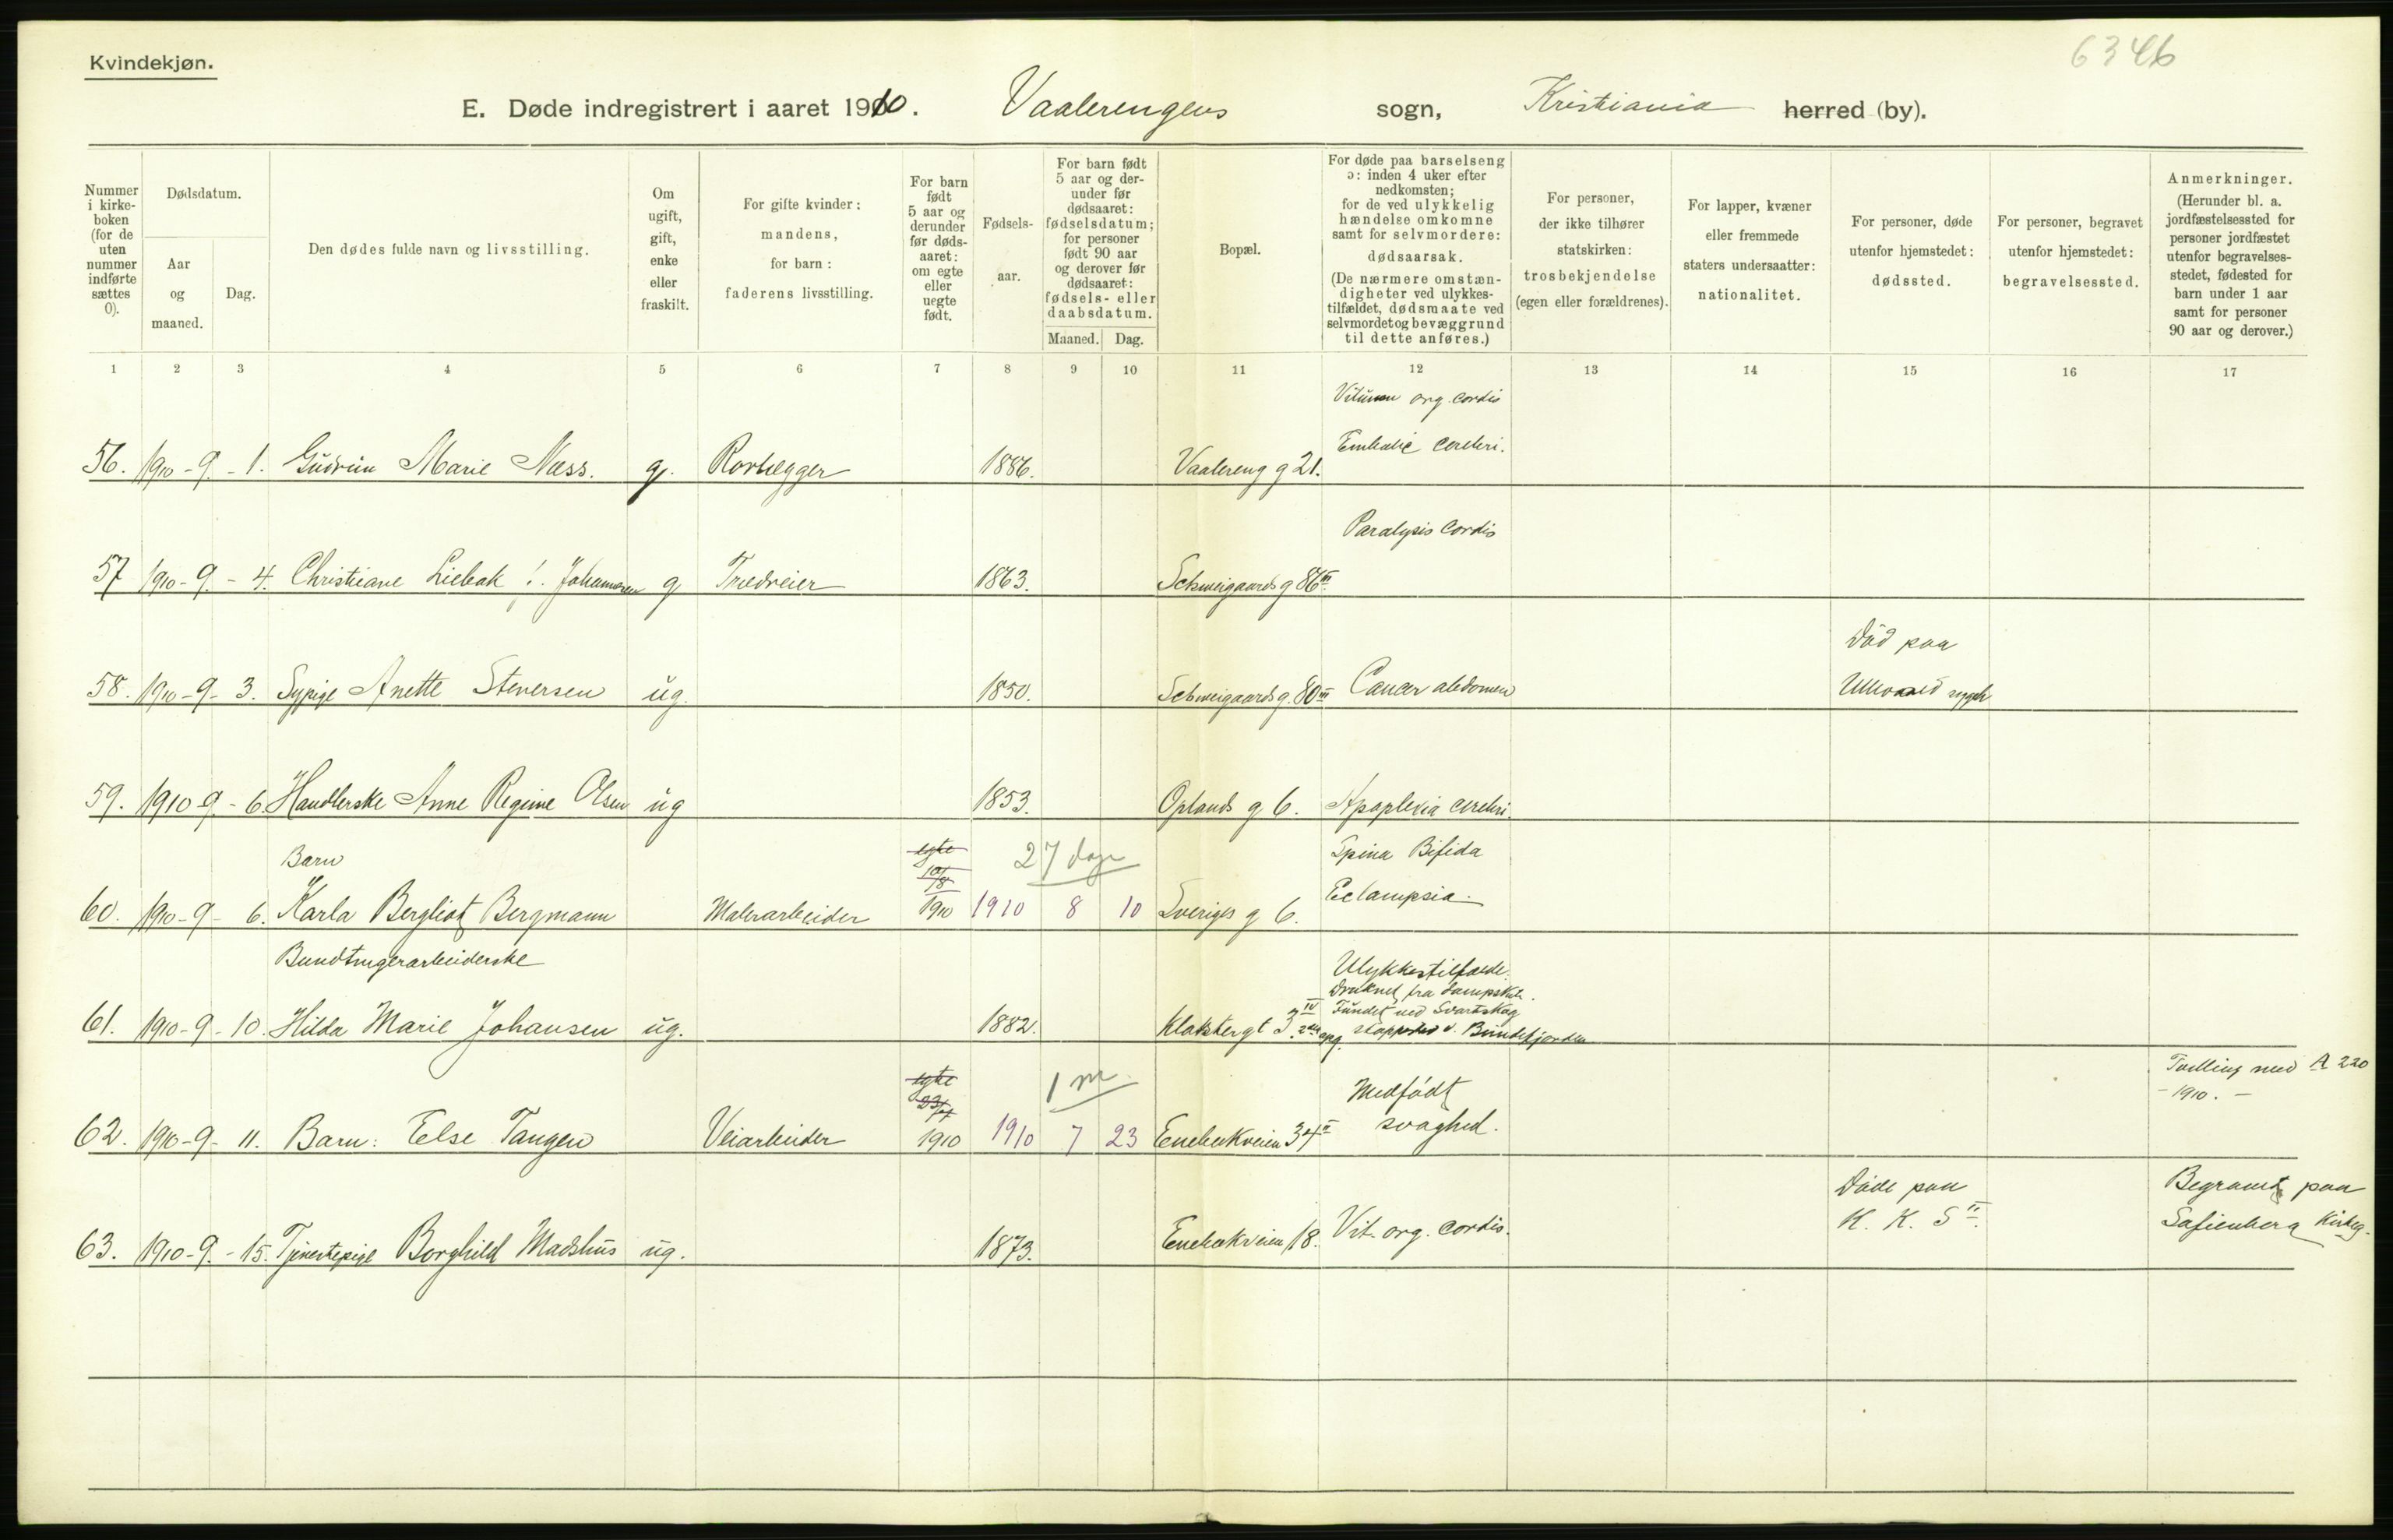 Kvindekjøn.
6346
E. Døde indregistrert i aaret 1910. Vaalerengens sogn, Kristiania herred (by).
Nummer i kirke-boken (for de uten nummer indførte sættes 0).
Dødsdatum.
Aar og maaned.
Dag.
Den dødes fulde navn og livsstilling.
Om ugift, gift, enke eller fraskilt.
For gifte kvinder: mandens, for barn: faderens livsstilling.
For barn født 5 aar og derunder før døds-aaret: om egte eller uegte født.
Fødsels-aar.
For barn født 5 aar og der-under før dødsaaret: fødselsdatum; for personer født 90 aar og derover før dødsaaret: fødsels- eller daabsdatum.
Maaned. Dag.
Bopæl.
For døde paa barselseng ɔ: inden 4 uker efter nedkomsten; for de ved ulykkelig hændelse omkomne samt for selvmordere: dødsaarsak. (De nærmere omstæn-digheter ved ulykkes-tilfældet, dødsmaate ved selvmordet og bevæggrund til dette anføres.)
For personer, der ikke tilhører statskirken: trosbekjendelse (egen eller forældrenes).
For lapper, kvæner eller fremmede staters undersaatter: nationalitet.
For personer, døde utenfor hjemstedet: dødssted.
For personer, begravet utenfor hjemstedet: begravelsessted.
Anmerkninger. (Herunder bl. a. jordfæstelsessted for personer jordfæstet utenfor begravelses-stedet, fødested for barn under 1 aar samt for personer 90 aar og derover.)
1 2 3 4 5 6 7 8 9 10 11 12 13 14 15 16 17
Vitium org. cordis
56. 1910-9.-1. Gudrun Marie Næss. g. Rørlegger 1886. Vaalereng g 21. Embolie cerebri.
Paralysis Cordis
57 1910-9.-4. Christiane Liebak f. Johannesen g Trædreier 1863. Schweigaards g 86 III
Død paa
58. 1910-9-3. Sypige Anette Steversen ug. 1850. Schweigaards g. 80 III Cancer abdomen Ullevaal sygeh
59. 1910-9.-6. Handlerske Anne Regine Olsen ug 1853. Oplands g 6. Apoplexia cerebri.
Barn egte 10/8 27 dage Spina Bifida
60. 1910-9-6. Karla Bergliot Bergmann Malerarbeider 1910 1910 8 10 Sveriges g 6. Eclampsia.
Bundtmagerarbeiderske Ulykkestilfælde.
Druknet fra dampskib.
Fundet ved Svartskog
61. 1910-9-10. Hilda Marie Johansen ug. 1882. Klostergt 3 IV 2den opg. stoppested v. Bundefjorden
egte 23/7 1 m. Medfødt Tvilling med A 220
- 1910. -
62. 1910-9-11. Barn: Else Tangen Veiarbeider 1910 1910 7 23 Enebakveien 34 II svaghed.
Døde paa Begravet paa
K. K. S II. Sofienberg Kirkeg.
63. 1910-9.-15. Tjenestepige Borghild Madshus ug. 1873. Enebakveien 18. Vit. org. cordis.